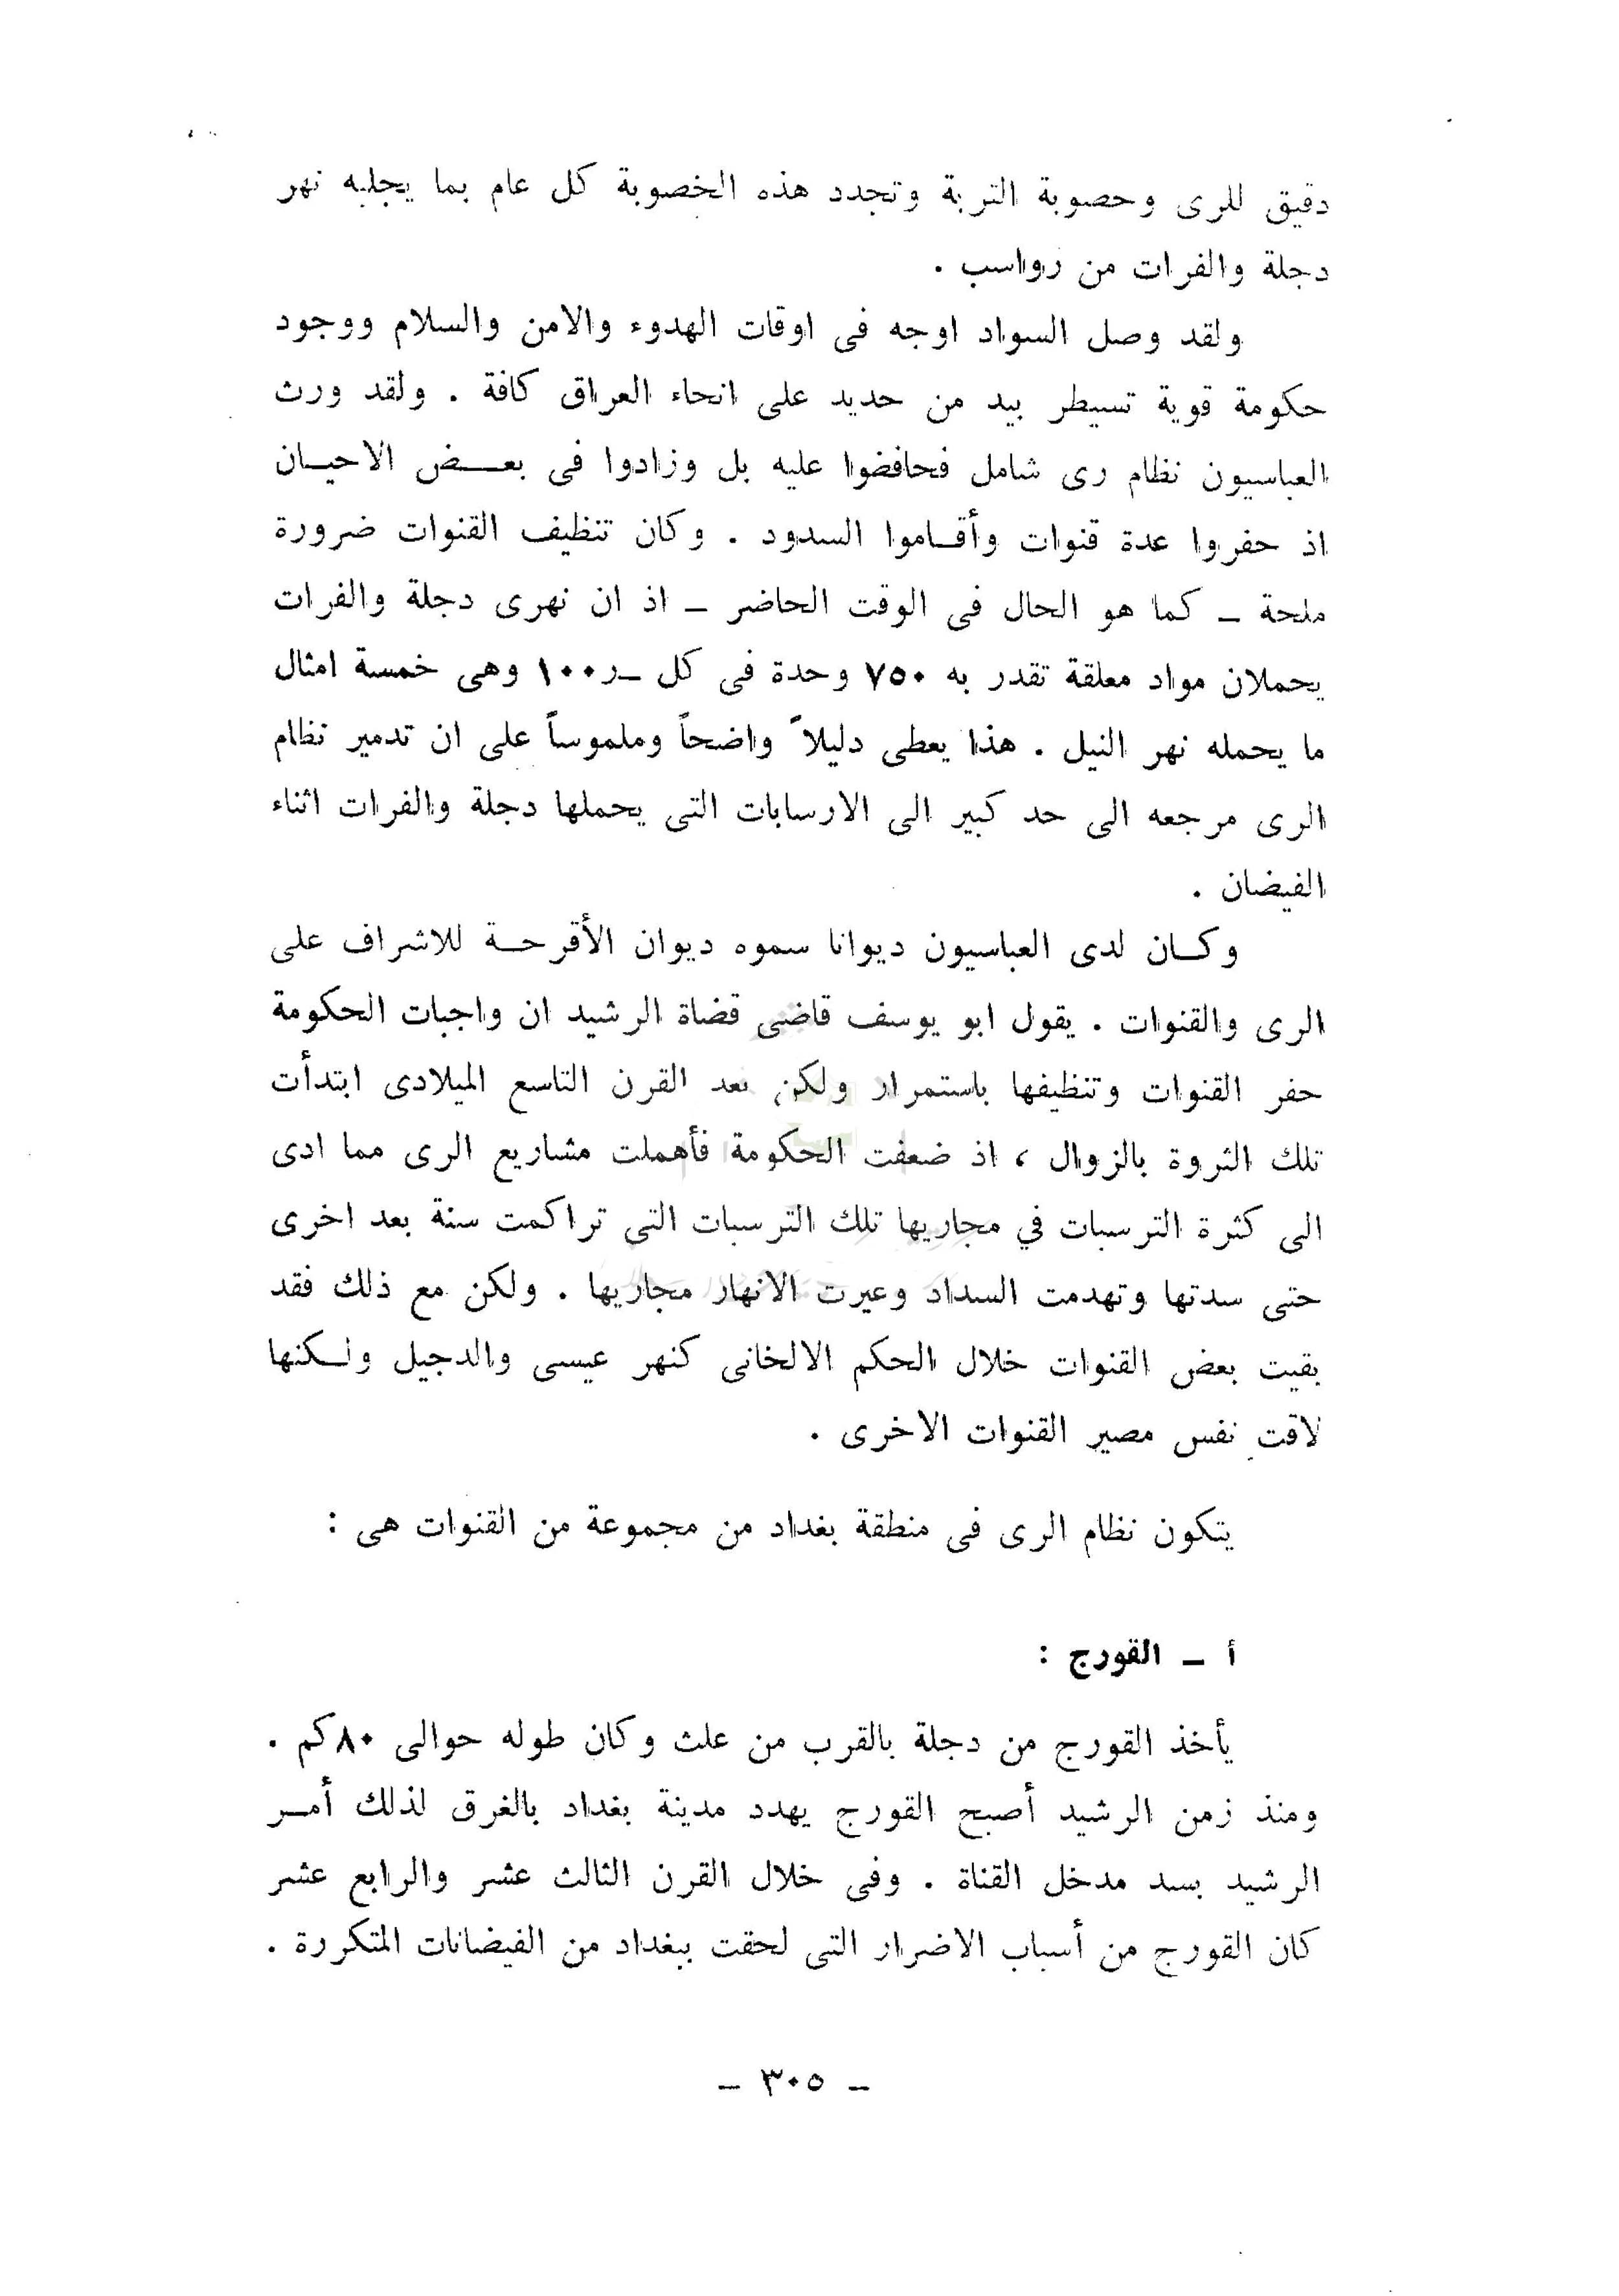 دقيق للرى وحصوبة التربة وتجدد هذه الخصوبة كل عام بما يجلبه نهر
دجلة والفرات من رواسب .
ولقد وصل السواد اوجه فى اوقات الهدوء والامن والسلام ووجود
حكومة قوية تسيطر بيد من حديد على انحاء العراق كافة . ولقد ورث
العباسيون نظام رى شامل فحافضوا عليه بل وزادوا فى بعــض الاحيـان
اذ حفروا عدة قنوات وأقـاموا السدود . وكان تنظيف القنوات ضرورة
ملحة ـ كما هو الحال فى الوقت الحاضر ـ اذ ان نهرى دجلة والفرات
يحملان مواد معلقة تقدر به ٧٥٠ وحدة فى كل ـر١٠٠ وهى خمسة امثال
ما يحمله نهر النيل . هذا يعطى دليلاً واضحاً وملموساً على ان تدمير نظام
الرى مرجعه الى حد كبير الى الارسابات التى يحملها دجلة والفرات اثناء
الفيضان .
وكـان لدى العباسيون ديوانا سموه ديوان الأقرحـة للاشراف على
الرى والقنوات . يقول ابو يوسف قاضى قضاة الرشيد ان واجبات الحكومة
حفر القنوات وتنظيفها باستمرار ولكن بعد القرن التاسع الميلادى ابتدأت
تلك الثروة بالزوال ، اذ ضعفت الحكومة فأهملت مشاريع الرى مما ادى
الى كثرة الترسبات في مجاريها تلك الترسبات التى تراكمت سنة بعد اخرى
حتى سدتها وتهدمت السداد وعيرت الانهار مجاريها . ولكن مع ذلك فقد
بقيت بعض القنوات خلال الحكم الالخانى كنهر عيسى والدجيل ولـكنها
لاقت نفس مصير القنوات الاخرى .
يتكون نظام الرى فى منطقة بغداد من مجموعة من القنوات هى :
أ ـ القورج :
يأخذ القورج من دجلة بالقرب من علث وكان طوله حوالى ٨٠كم .
ومنذ زمن الرشيد أصبح القورج يهدد مدينة بغداد بالغرق لذلك أمـر
الرشيد بسد مدخل القناة . وفى خلال القرن الثالث عشر والرابع عشر
كان القورج من أسباب الاضرار التى لحقت ببغداد من الفيضانات المتكررة .
ـ ٣٠٥ ـ